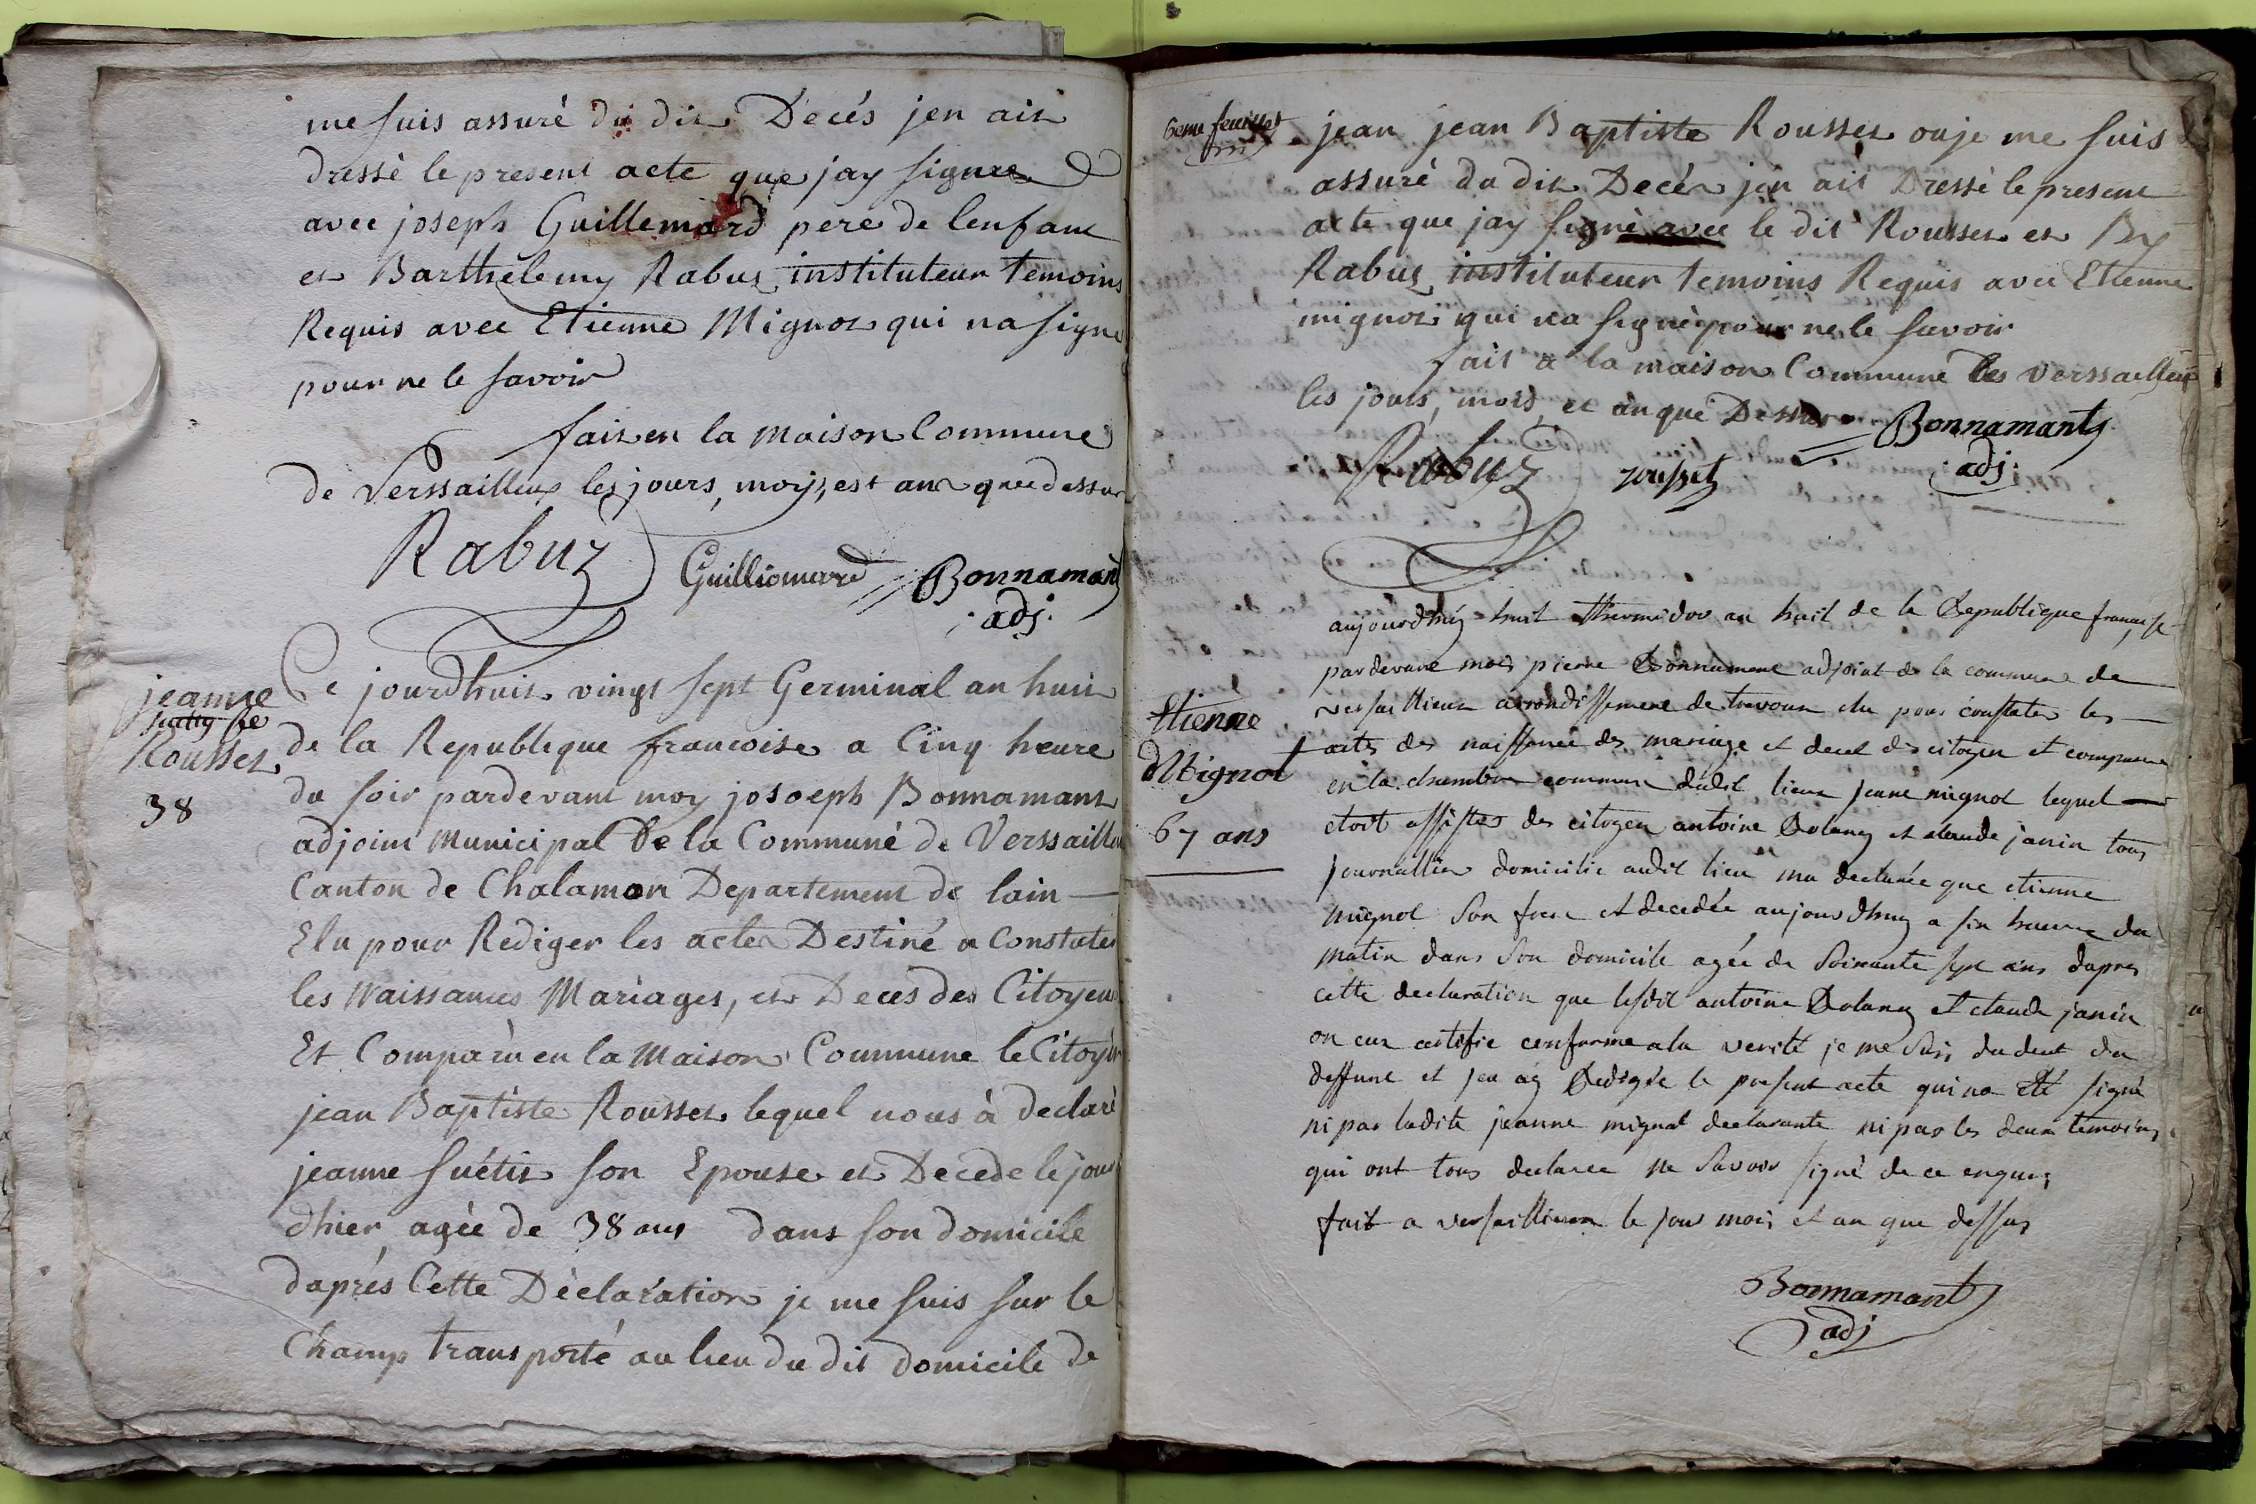 me suis assuré du dit Decés jen ait
dressé le present acte que jay signee
avec joseph Guillemard pere de lenfant
et Barthelemy Rabuz instituteur temoins
Requis avec Etienne Mignot qui na signe
pour ne le savoir
fait en la maison Commune
de Verssailleux les jours, moys, est an que dessus
Rabuz Guilliomard Bonnamant
adj.
jeanne
Rousset
38
Ce jourdhuit vingt sept Germinal an huit
de la Republique francoise a Cinq heure
du soir pardevant moy josoeph Bonnamant
adjoint Municipal De la Communé de Verssailleux
Canton de Chalamon Departement de lain
Elu pour Rediger les actes Destiné a Constater
les Naissances Mariages, et Decés des Citoyens
Et Comparu en la Maison Commune le Citoyen
jean Baptiste Rousset lequel nous à declaré
jeanne suétit son Epouse et Decede le jour
dhier agée de 38 ans dans son domicile
daprés Cette Déclaration je me suis sur le
Champ transporté au lieu du dit domicile de
6eme feuillet
jean jean Baptiste Rousset ou je me suis
assuré du dit Decés jen ait Dressé le present
acte que jay signé avec le dit Rousset et By
Rabuz instituteur temoins Requis avec Etienne
mignot qui na signé pour ne le savoir
fait a la maison Commune Des verssailleux
les jours, mois, et an que Dessus Bonnamant
adj.
Rabuz rousset
Etienne
Mignot
67 ans
aujourdhuy huit thermidor an huit de la Republique francaise
pardevant moi pierre Bonnament adjoint de la commune de
versaillieux arrondissement de trevoux elu pour constater les
actes des naissance des mariage et deces des citoyen et comparue
en la chambre commune dudit lieux jeane mignot lequel
etoit assister des citoyen antoine Bolany et claude janin tous
journallier domicilie audit lieu ma declarée que etienne
mignot son frere et decedée aujourdhuy a six heure du
matin dans son domicile agée de soixante sept ans dapres
cette declaration que lesdit antoine Bolany et claude janin
on eux certifie conforme a la verité je me suis du
deffunt et jen ay Redigée le present acte qui na Eté signé
ni par ladite jeanne mignot declarante ni par les deux temoins
qui ont tous declaree ne savoir signé de ce enquis
fait a versaillieux le jour mois et an que dessus
Bonnamant
adj